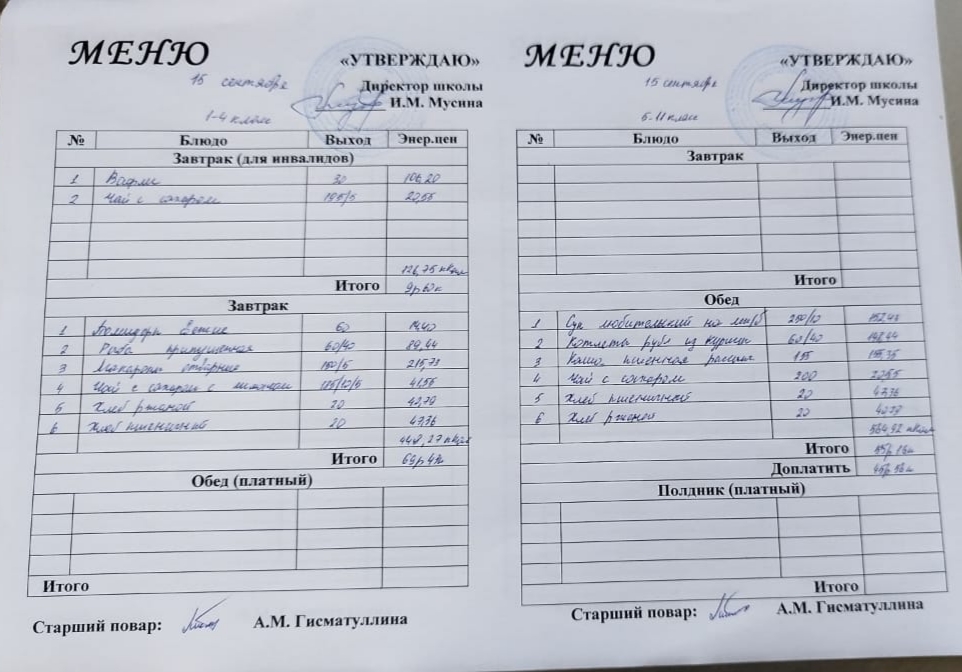 МЕНЮ
«УТВЕРЖДАЮ»
15 сентября
Директор школы
И.М. Мусина
1-4 класс
№ Блюдо Выход Энер.цен
Завтрак (для инвалидов)
1 Вафли 30 106,20
2 Чай с сахаром 195/5 20,55
126,75 ккал
Итого 9р 60к
Завтрак
1 Помидоры свежие 60 14,40
2 Рыба припущенная 60/40 89,44
3 Макароны отварные 150/5
4 Чай с сахаром с лимоном 41,56
5 Хлеб ржаной 20 40,79
6 Хлеб пшеничный 20 47,36
448,27 ккал
Итого 69р
Обед (платный)
Итого
Старший повар: А.М. Гисматуллина
МЕНЮ
«УТВЕРЖДАЮ»
15 сентября
Директор школы
И.М. Мусина
5-11 класс
№ Блюдо Выход Энер.цен
Завтрак
Итого
Обед
1 Суп любительский на 250/10 152,48
2 Котлета руб из курицы 60/40
3 Каша пшенная 155
4 Чай с сахаром 200 20,55
5 Хлеб пшеничный 20 47,36
6 Хлеб ржаной 20 40,79
564,92 ккал
Итого
Доплатить
Полдник (платный)
Итого
Старший повар: А.М. Гисматуллина